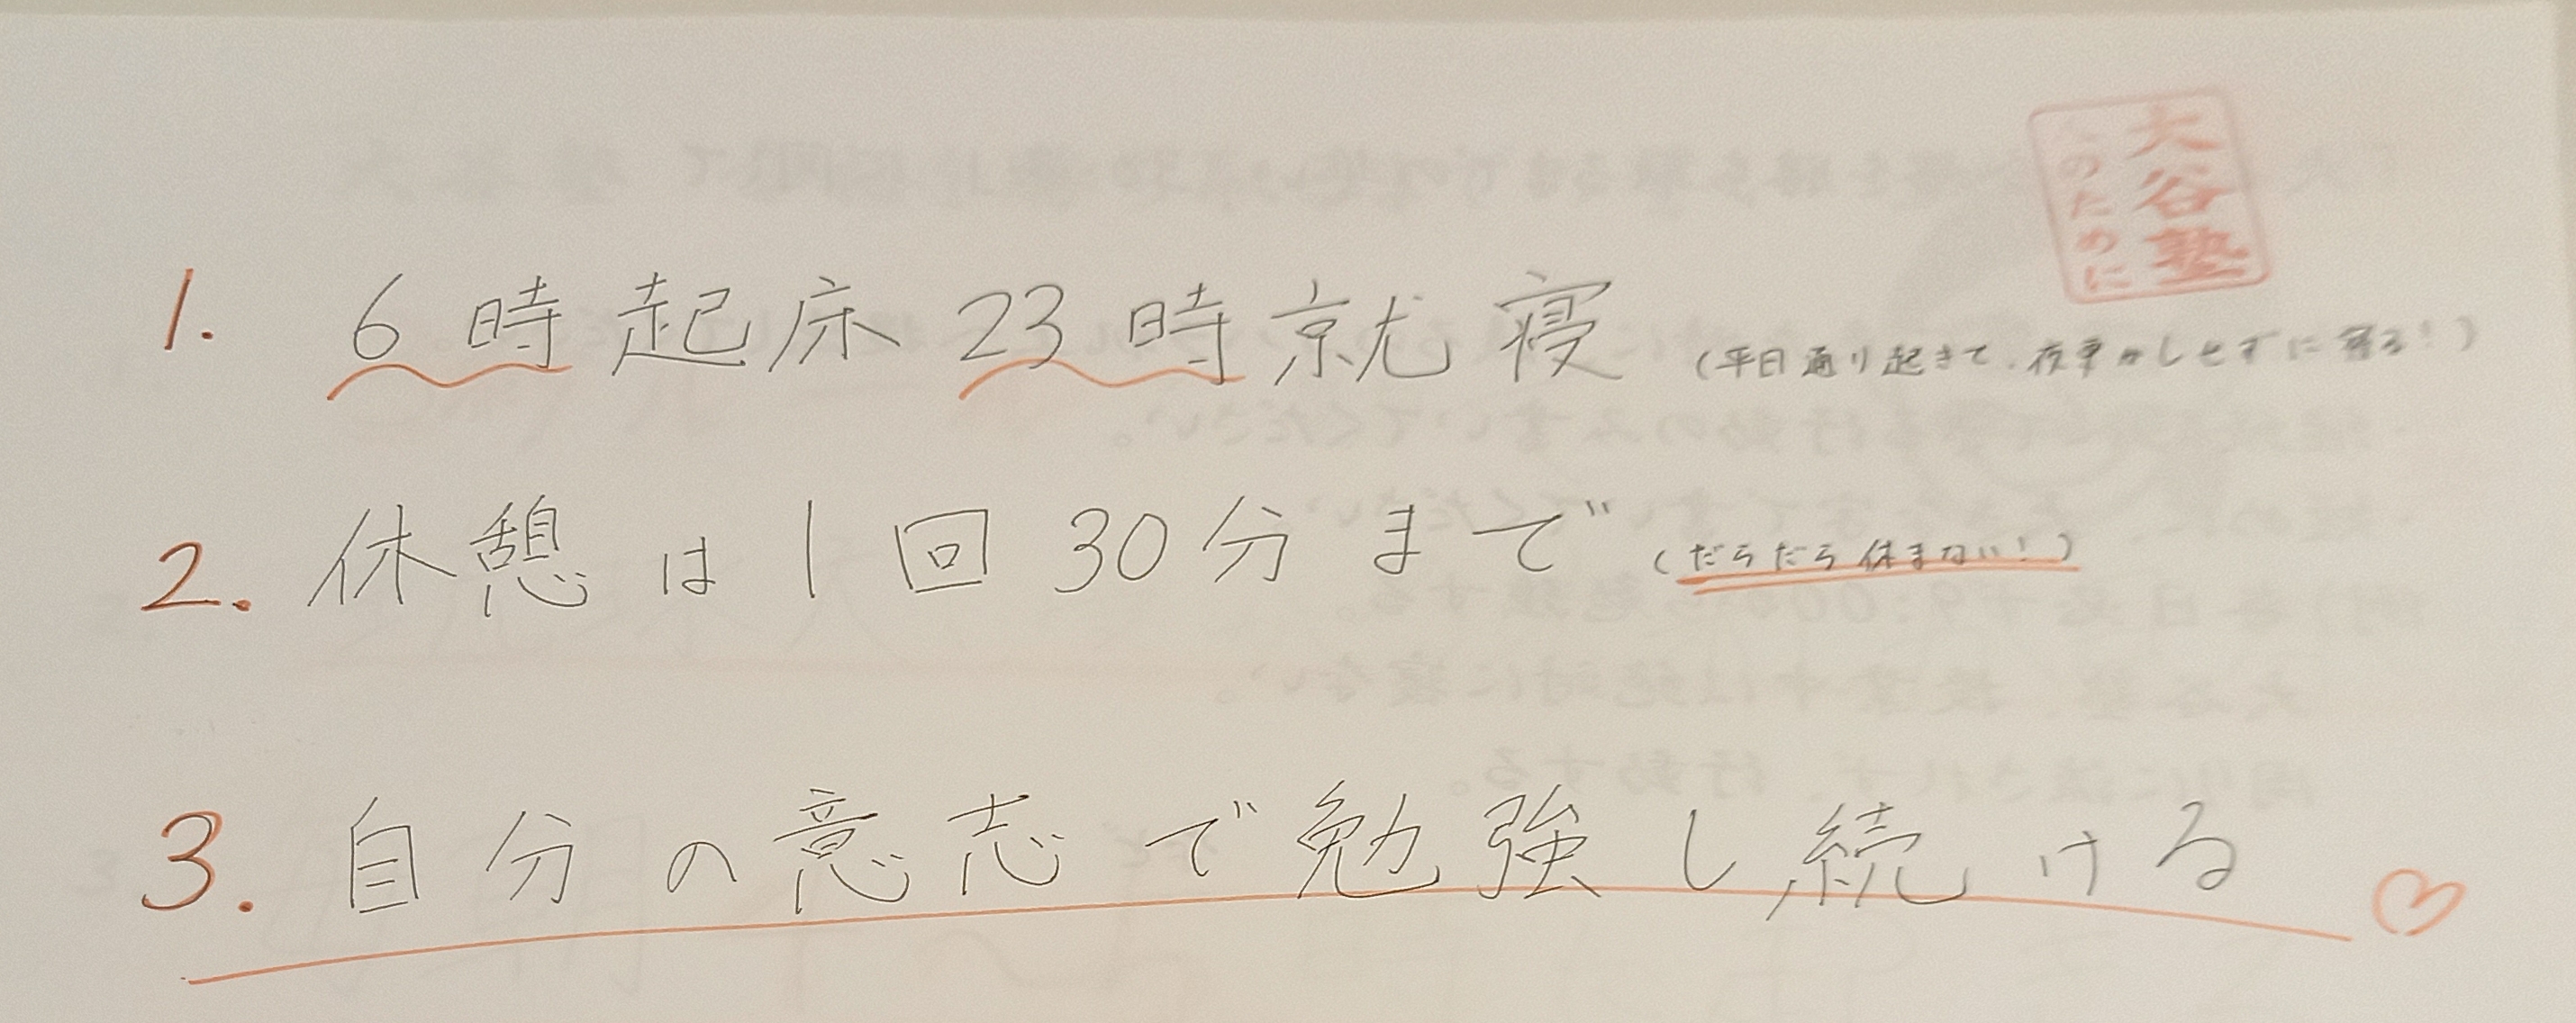 大谷塾
のために
1. 6時起床23時就寝 (平日通り起きて、夜更かしせずに寝る!)
2. 休憩は1回30分まで (だらだら休まない!)
3. 自分の意志で勉強し続ける♡